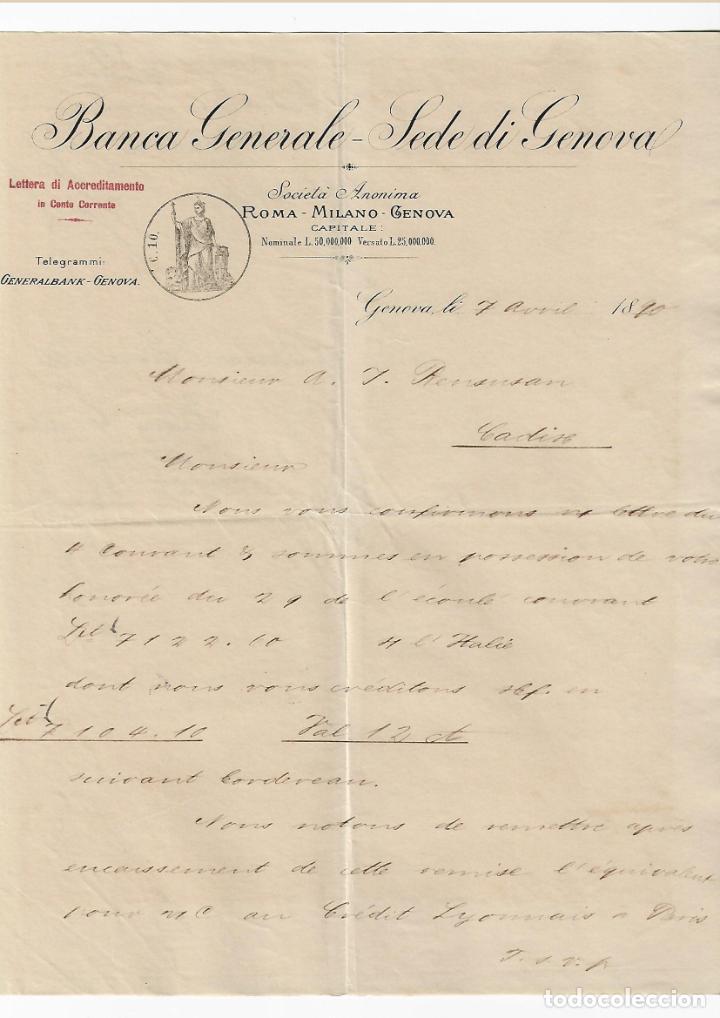 Banca Generale - Sede di Genova
Lettera di Accreditamento
in Conto Corrente
Società Anonima
ROMA - MILANO - GENOVA
CAPITALE:
Nominale L. 50,000,000 Versato L. 25,000,000.
C. 10.
Telegrammi:
GENERALBANK - GENOVA.
Genova, li 7 Avril 1890
Monsieur A. J. Bensusan
Cadix
Monsieur
Nous vous confirmons n/ lettre du
4 Courant & sommes en possession de votre
honorée du 29 de l'écoulé couvrant
7122.10 s/ l'Italie
dont nous vous créditons sbf. en
7104.10 Val 12 ct
suivant bordereau.
Nous notons de remettre après
encaissement de cette remise l'équivalent
pour v/C au Crédit Lyonnais a Paris
T. s. v. p.
todocoleccion